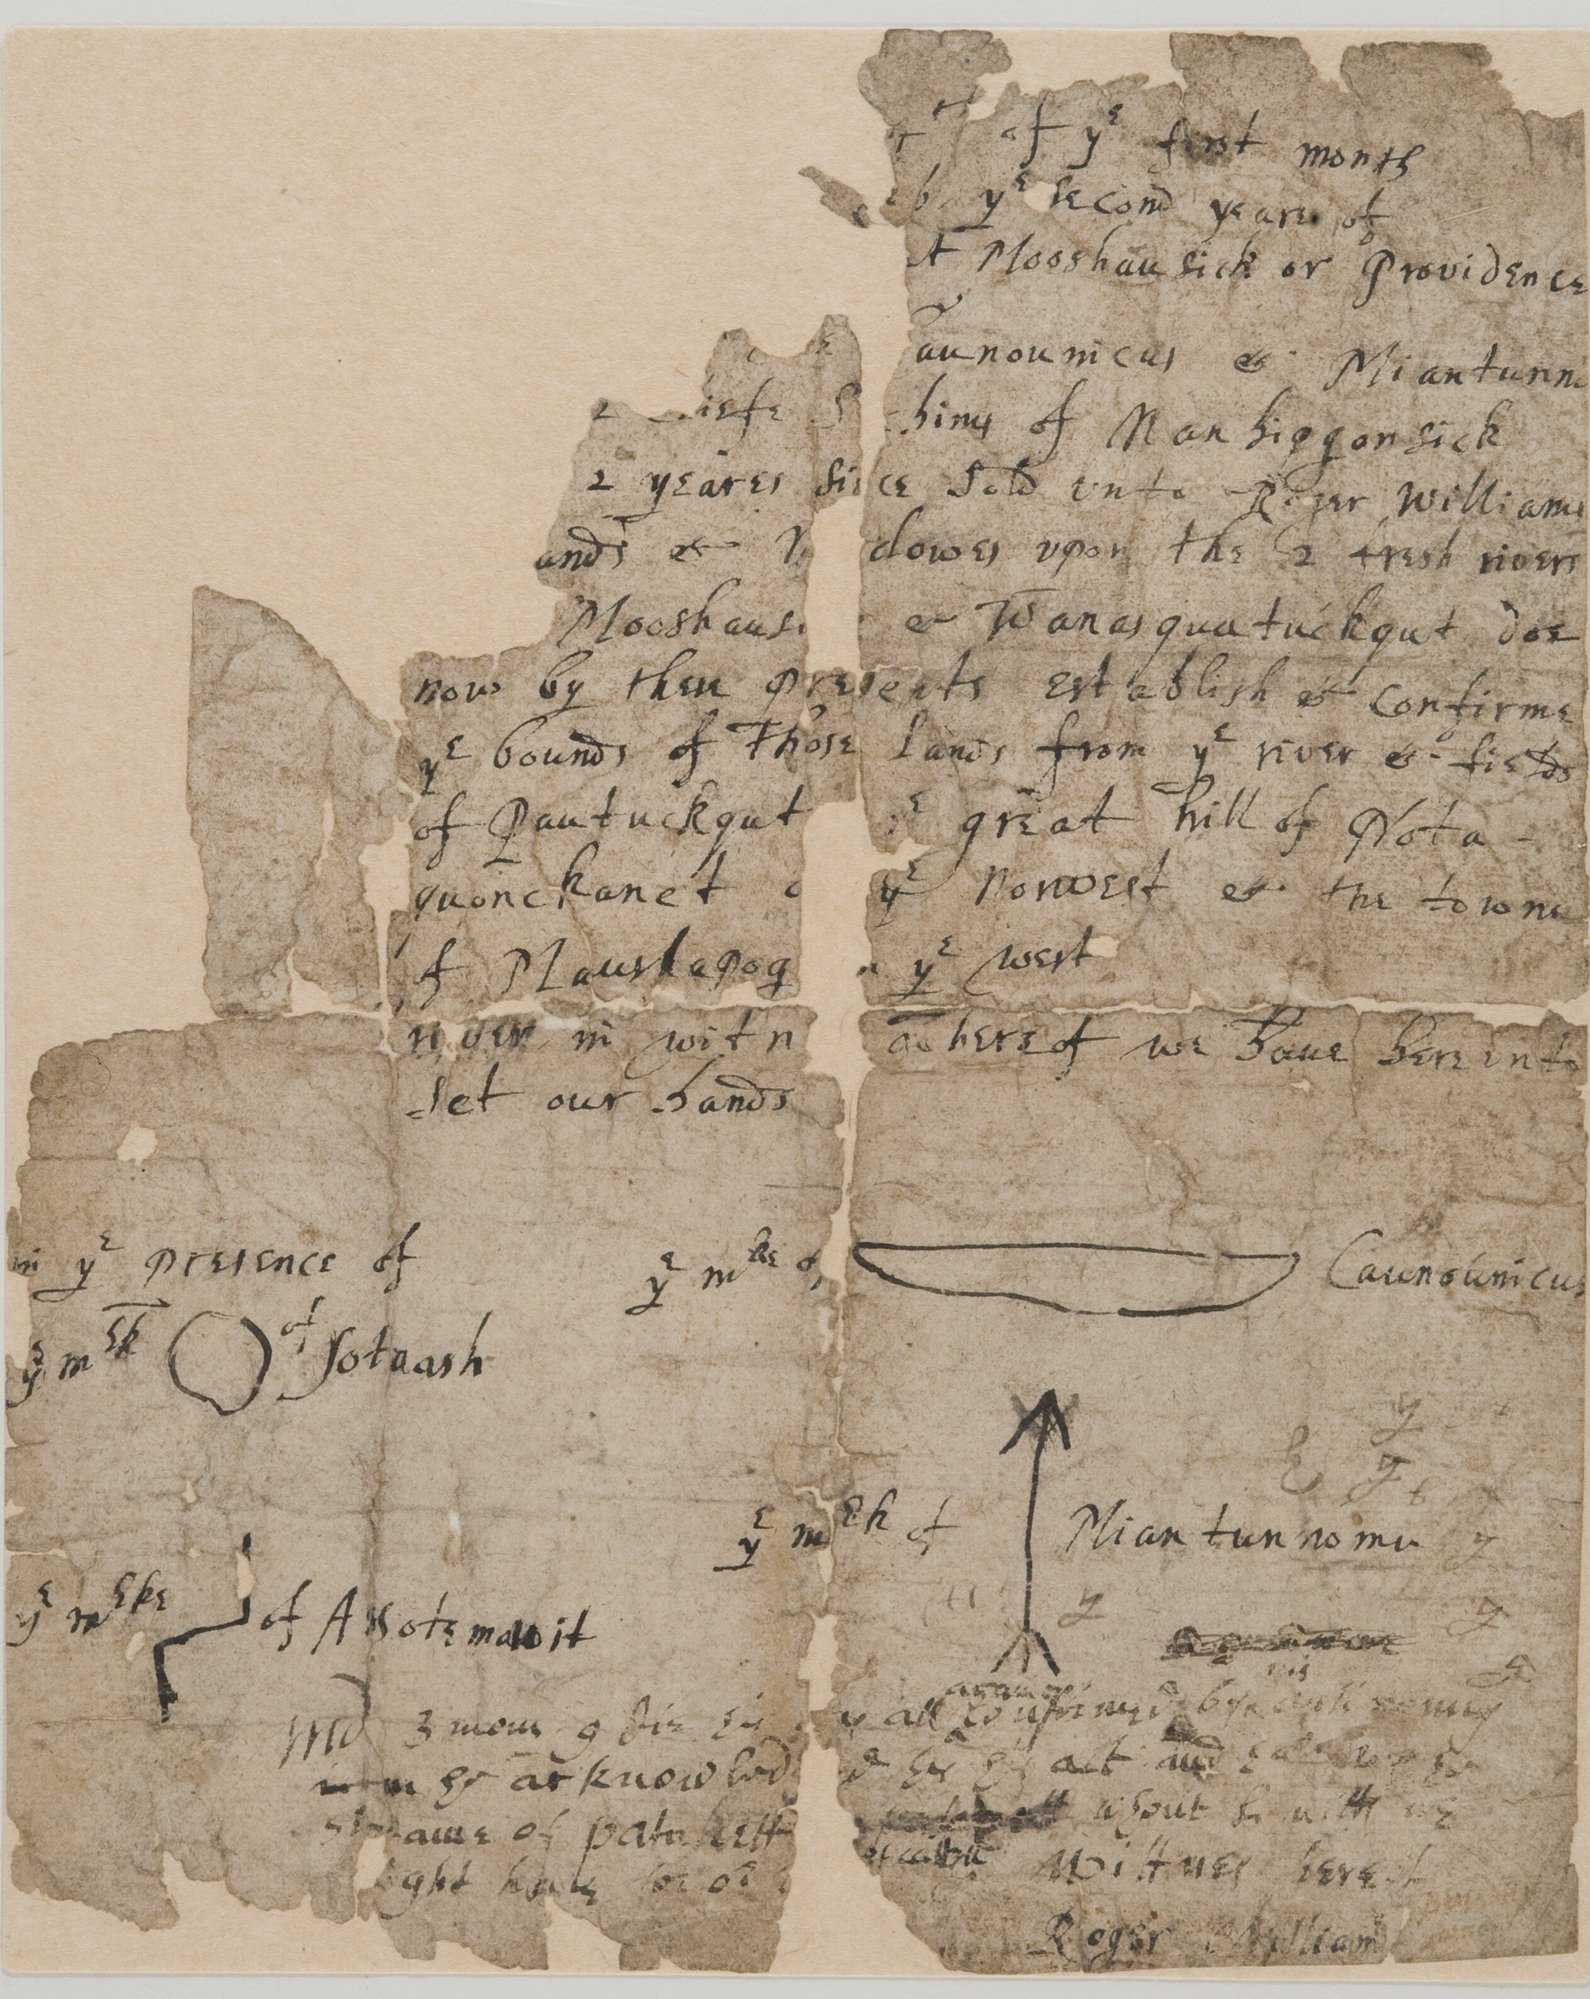 of yᵉ first month
yᵉ second yeare of
At Mooshausick or Providence
aunounicus & Miantunn
2 hiefe S hims of Nanhiggonsick
2 yeares since sold vnto Roger Williams
ands & M dowes vpon the 2 fresh rivers
Mooshausi & Wanasquatuckqut doe
now by these presents establish & confirme
yᵉ bounds of those lands from yᵉ river & fields
of Pautuckqut yᵉ great hill of Nota-
quonckanet o yᵉ norwest & the towne
of Maushapog n yᵉ west
river in witn whereof we have herevnto
set our hands
in yᵉ presence of
yᵉ mᵏᵉ of Caunounicus
yᵉ mᵉᵏ of Sotaash
yᵉ mᵉᵏ of Miantunnomu
yᵉ mᵉᵏᵉ of Assotemauit
Md 3 mon 9 die all confirmed by
he acknowledg act and
streame of patuckett about
ight have for Wittnes hereof
Roger Williams